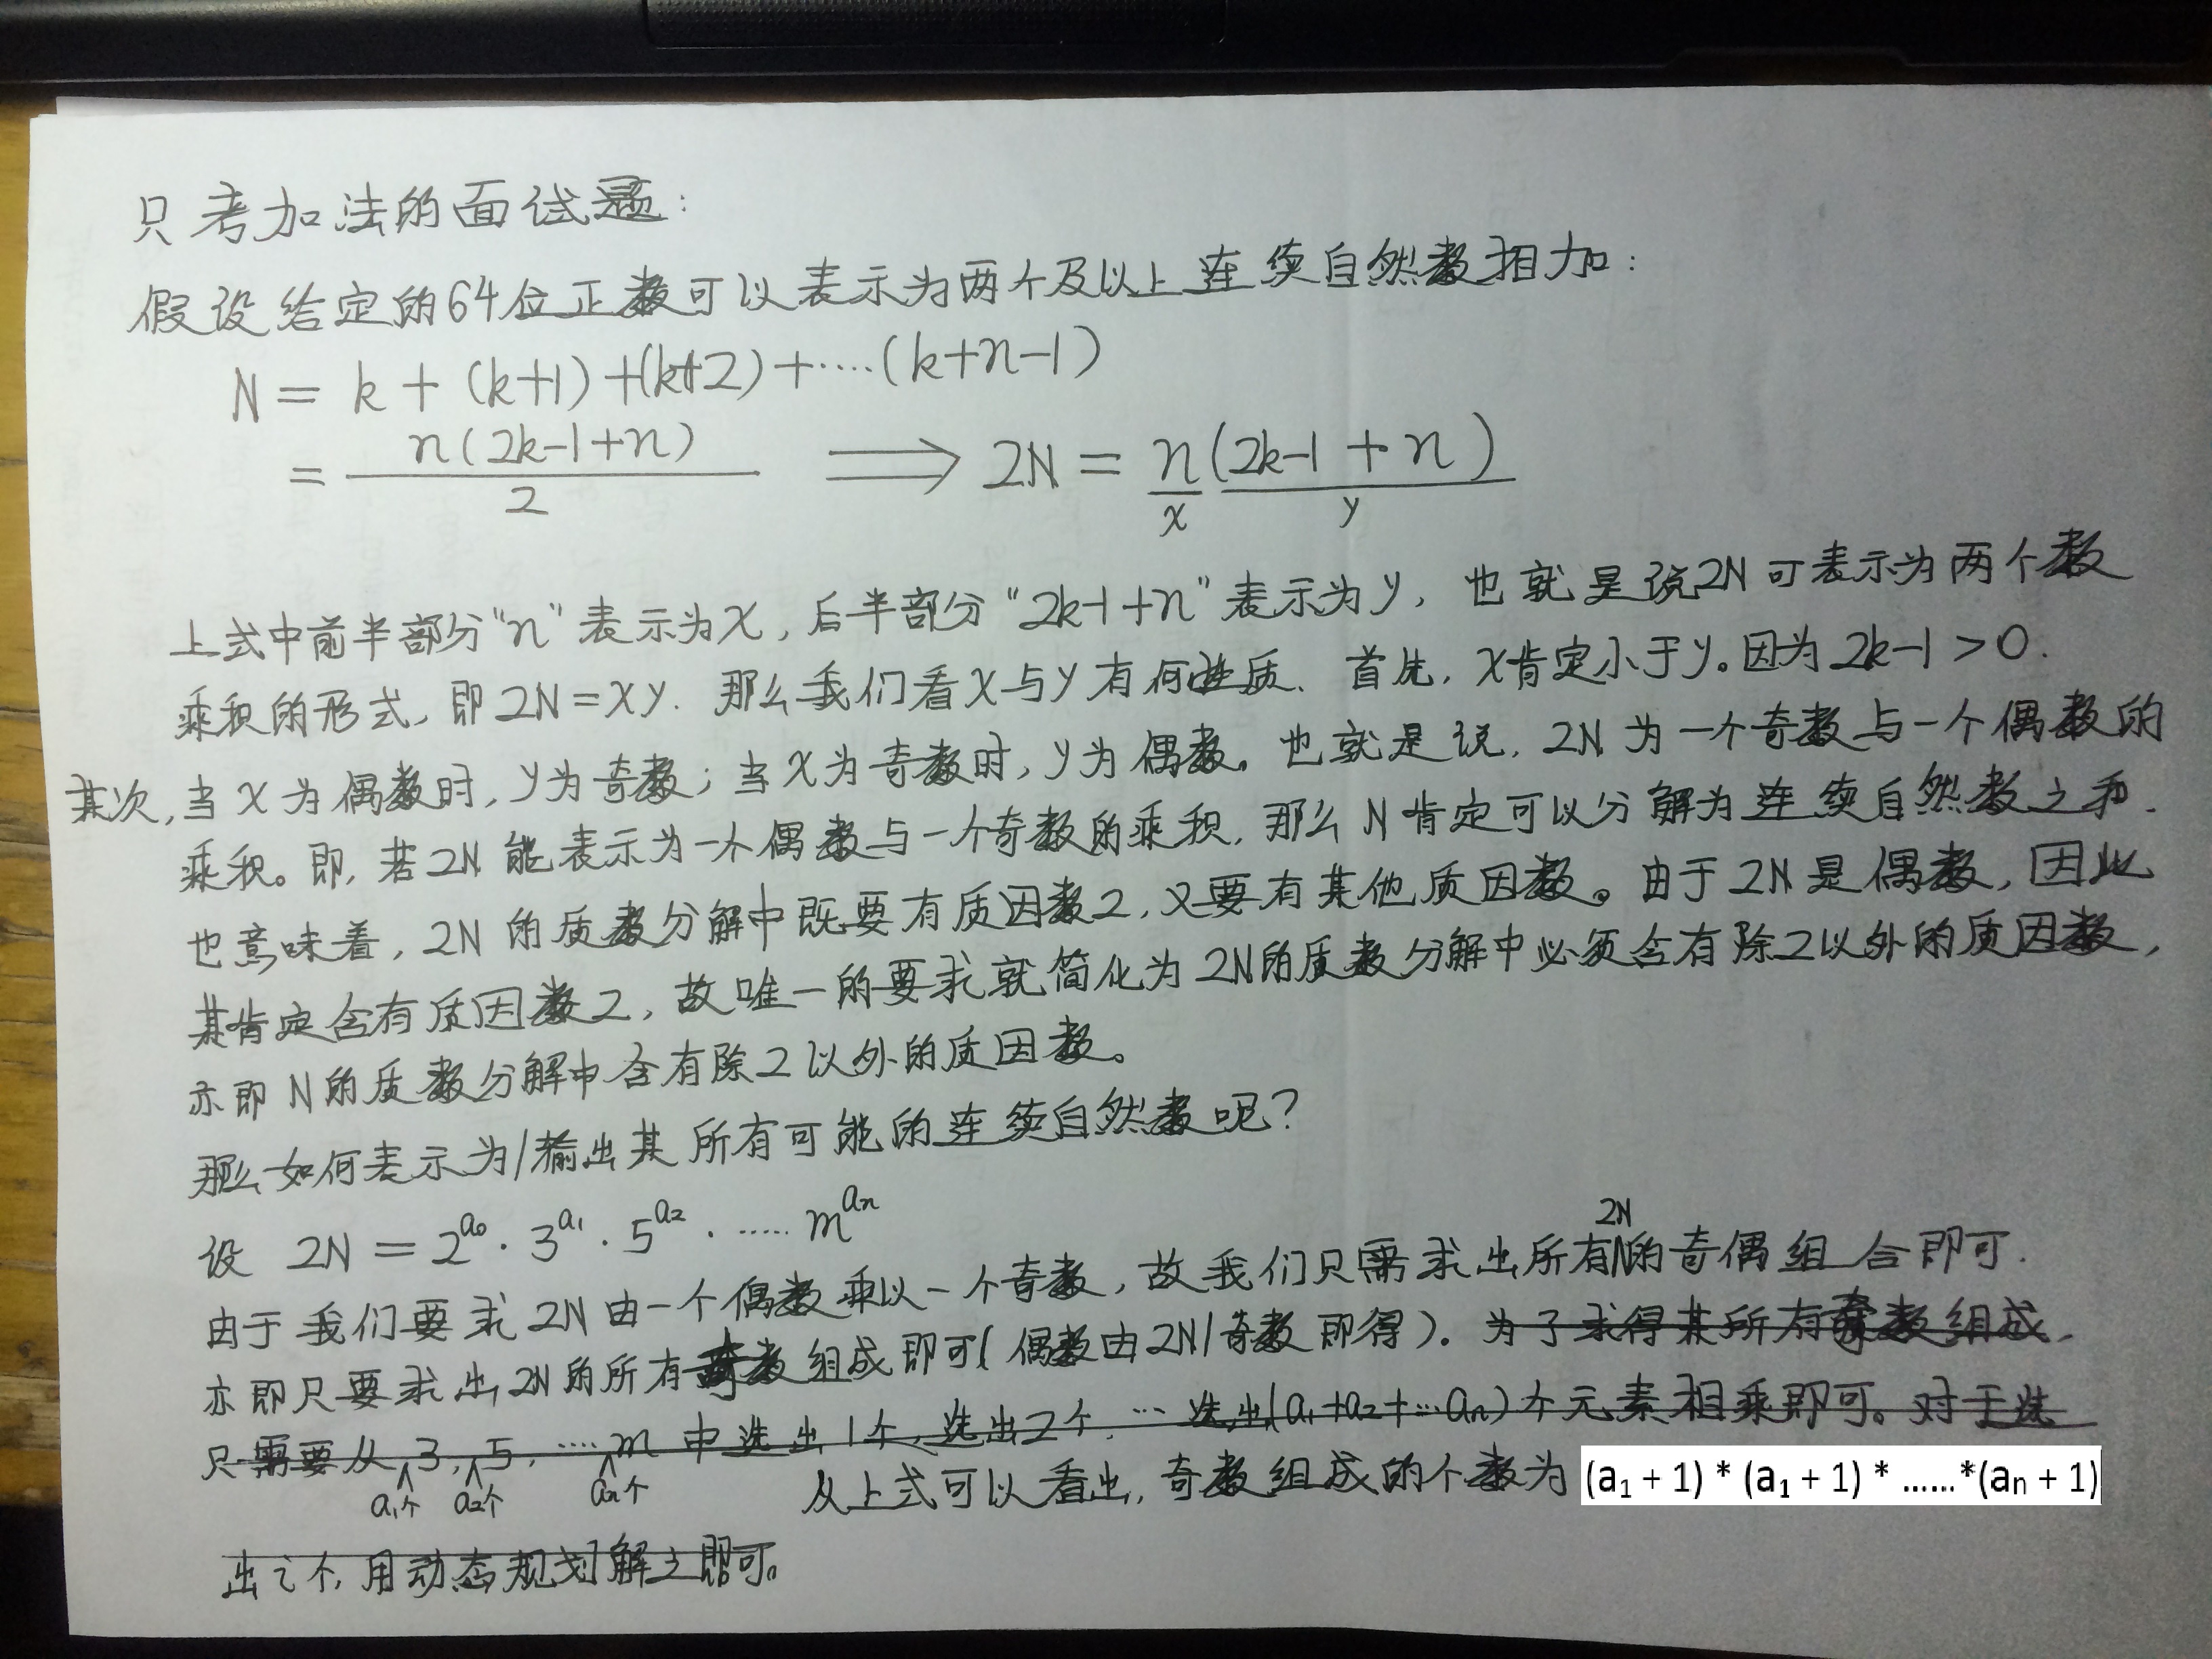 只考加法的面试题:
假设给定的64位正数可以表示为两个及以上连续自然数相加:
N = k + (k+1) +(k+2) +····(k+n-1)
= n(2k-1+n) / 2 ⟹ 2N = n(2k-1 + n)
x y
上式中前半部分“n”表示为x,后半部分“2k-1+n”表示为y,也就是说2N可表示为两个数
乘积的形式,即2N=xy.那么我们看x与y有何性质.首先,x肯定小于y。因为2k-1>0.
其次,当x为偶数时,y为奇数;当x为奇数时,y为偶数。也就是说,2N为一个奇数与一个偶数的
乘积。即,若2N能表示为一个偶数与一个奇数的乘积,那么N肯定可以分解为连续自然数之和.
也意味着,2N的质数分解中既要有质因数2,又要有其他质因数。由于2N是偶数,因此
其肯定含有质因数2,故唯一的要求就简化为2N的质数分解中必须含有除2以外的质因数,
亦即N的质数分解中含有除2以外的质因数。
那么如何表示为/输出其所有可能的连续自然数呢?
设 2N = 2^a₀ · 3^a₁ · 5^a₂ · ····· m^aₙ
2N
由于我们要求2N由一个偶数乘以一个奇数,故我们只需求出所有N的奇偶组合即可.
亦即只要求出2N的所有奇数组成即可(偶数由2N/奇数即得)。为了求得其所有奇数组成,
只需要从3,5,····m中选出1个,选出2个,···选出(a₁+a₂+···aₙ)个元素相乘即可。对于选
a₁个 a₂个 aₙ个 从上式可以看出,奇数组成的个数为 (a₁ + 1) * (a₁ + 1) * ……*(aₙ + 1)
出i个,用动态规划解之即可。